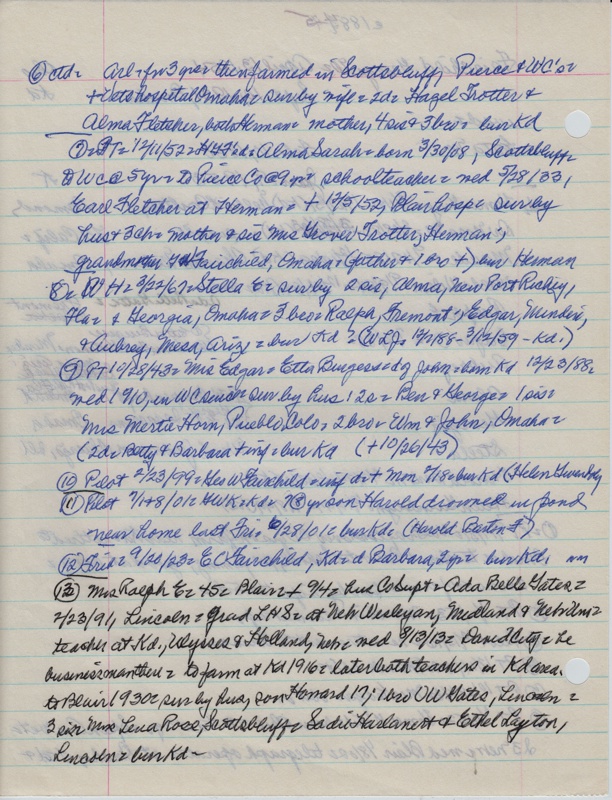 ⑥ ctd= Ark=fr 3 yrs= then farmed in Scottsbluff, Pierce & WC's=
+ Vets hospital Omaha= sur by wife= 2d= Hazel Trotter &
Alma Fletcher, both Herman= mother, 4 sis & 3 bro= bur Kd
⑦= PT= 12/11/52= Alma Sarah= born 3/30/08, Scottsbluff=
to WC @ 5 yr= to Pierce Co @ 9 yr= schoolteacher= wed 5/28/33,
Earl Fletcher at Herman= + 12/5/52, Blair hosp= sur by
hus & 3 ch= mother & sis Mrs Grover Trotter, Herman;
grandmother Fairchild, Omaha= (father & 1 bro +) bur Herman
8= 9/22/67= Stella E= sur by 2 sis, Alma, New Port Richey,
Fla= & Georgia, Omaha= 3 bro= Ralph, Fremont; Edgar, Minden,
& Aubrey, Mesa, Ariz= bur Kd= (WLJ= 12/2/88- 3/12/59 - Kd.)
⑨ PT 10/28/43= Mrs Edgar= Etta Burgess= dg John= born Kd 12/23/88=
wed 1910, in WC since= sur by hus 12s= Ben & George= 1 sis=
Mrs Mertie Horn, Pueblo, Colo= 2 bro= Wm & John, Omaha=
(2d= Betty & Barbara + inf= bur Kd (+10/26/43)
⑩ Pilot 2/23/99= Geo W Fairchild= inf d + Mon 2/18= bur Kd (Helen
⑪ Pilot 7/4&8/01= GWK= Kd= yr son Harold drowned in pond
near home last Fri. 6/28/01= bur Kd= (Harold Barton F)
⑫ 9/20/23= EC Fairchild, Kd= d Barbara, 2 yr= bur Kd.
⑬ Mrs Ralph E= 45= Blair + 9/4= hus Co Supt= Ada Bella Yates=
2/23/91, Lincoln= grad LHS= at Neb Wesleyan, Midland & Neb Uni=
teacher at Kd, Ulysses & Holland, Neb= wed 8/13/13= David City= he
businessman then= to farm at Kd 1916= later both teachers in Kd area.
to Blair 1930= sur by hus, son Howard 17; 1 bro OW Yates, Lincoln=
3 sis= Mrs Lena Rose, Scottsbluff= Sadie & Ethel Layton,
Lincoln= bur Kd -